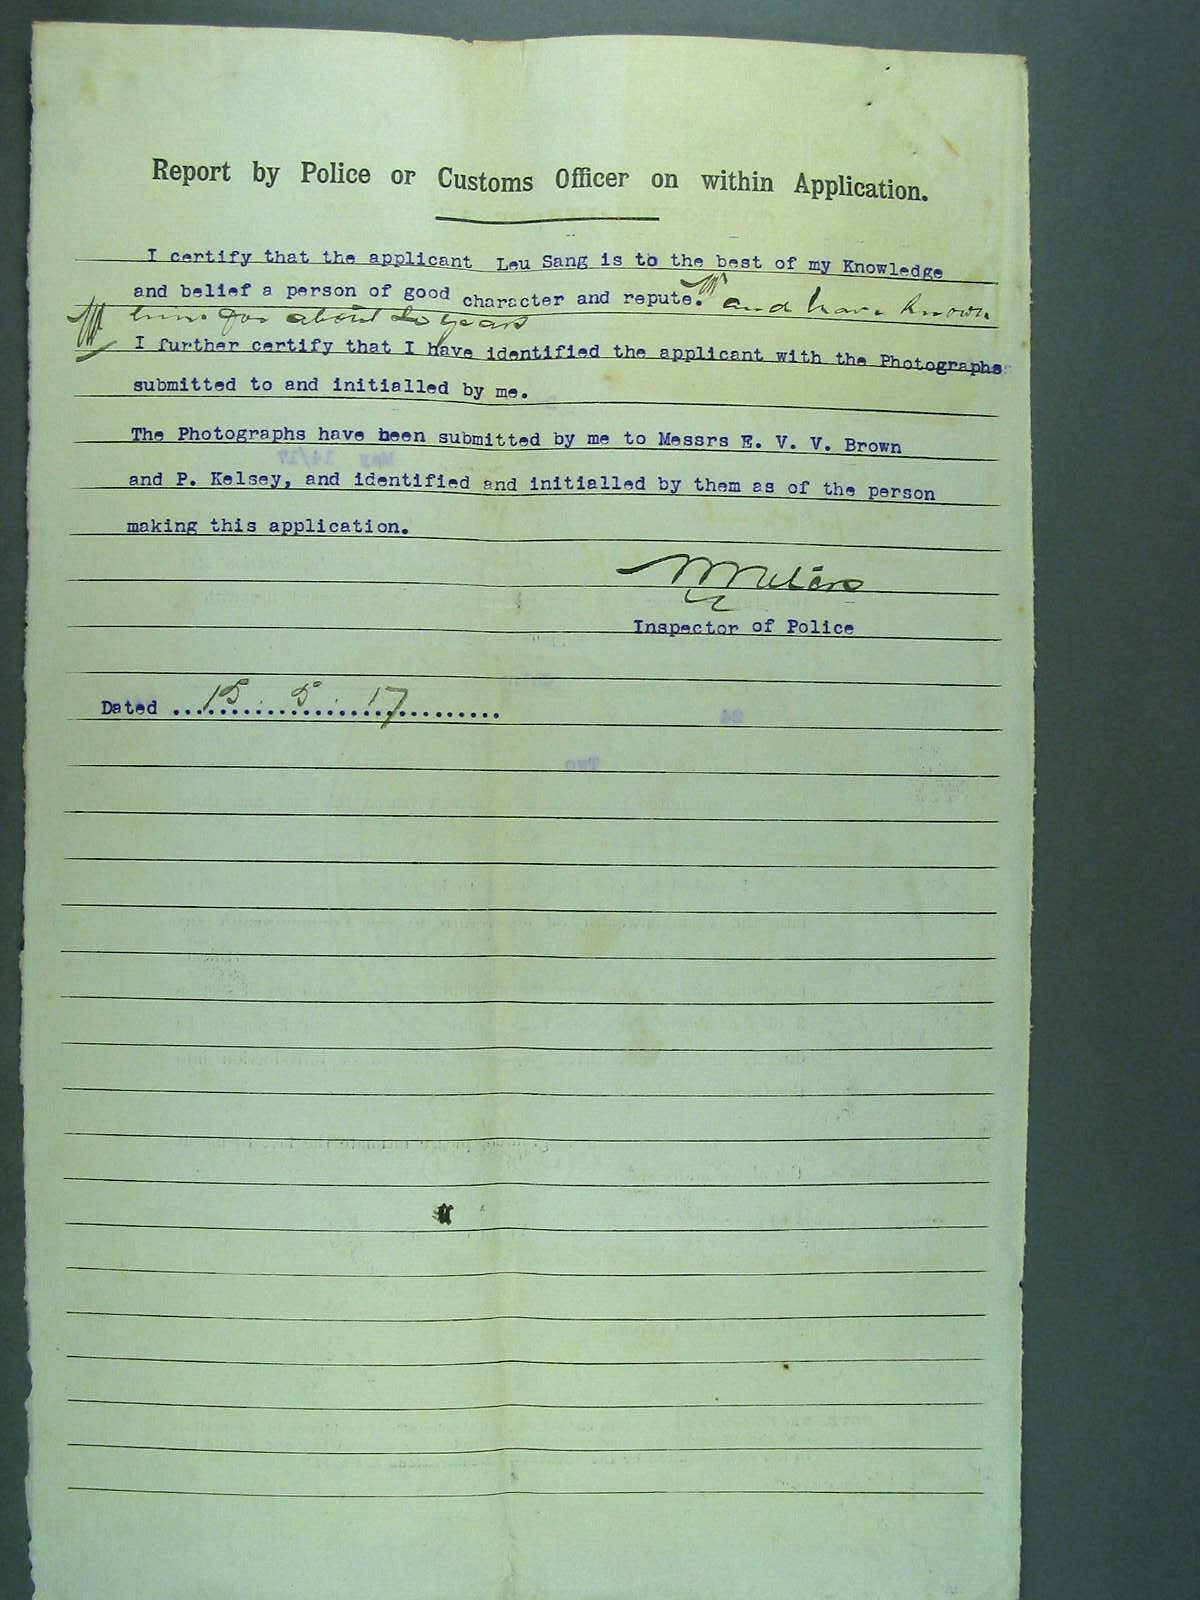 Report by Police or Customs Officer on within Application.
I certify that the applicant Leu Sang is to the best of my Knowledge
and belief a person of good character and repute. and have known
him for about 20 years
I further certify that I have identified the applicant with the Photographs
submitted to and initialled by me.
The Photographs have been submitted by me to Messrs E. V. V. Brown
and P. Kelsey, and identified and initialled by them as of the person
making this application.
Inspector of Police
Dated 15.5.17